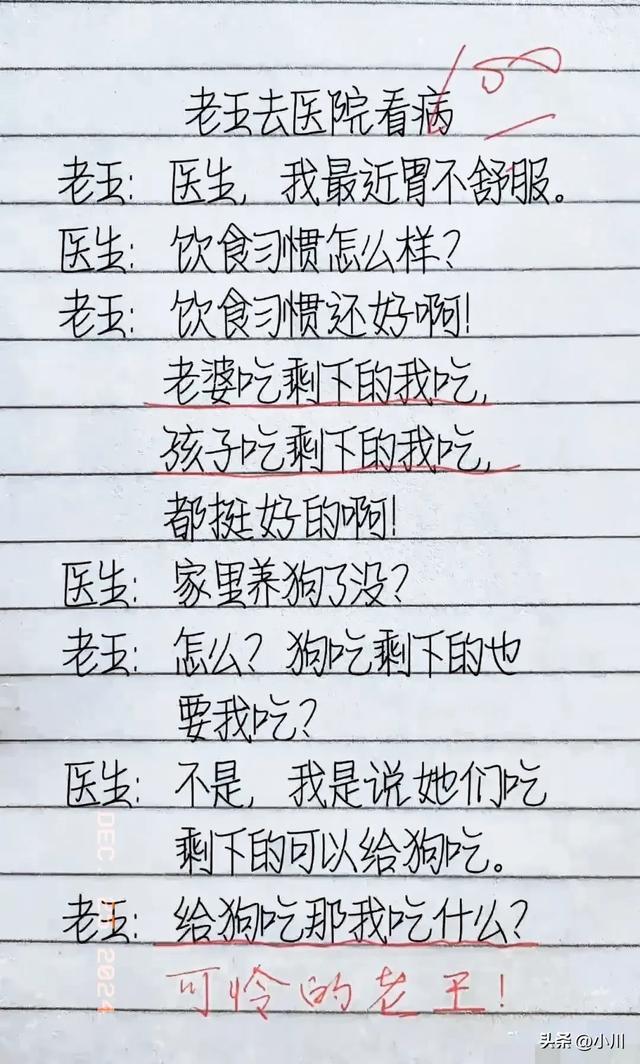 100
老王去医院看病
老王：医生，我最近胃不舒服。
医生：饮食习惯怎么样？
老王：饮食习惯还好啊！
老婆吃剩下的我吃，
孩子吃剩下的我吃，
都挺好的啊！
医生：家里养狗了没？
老王：怎么？狗吃剩下的也
要我吃？
医生：不是，我是说她们吃
剩下的可以给狗吃。
老王：给狗吃那我吃什么？
可怜的老王！
头条@小川